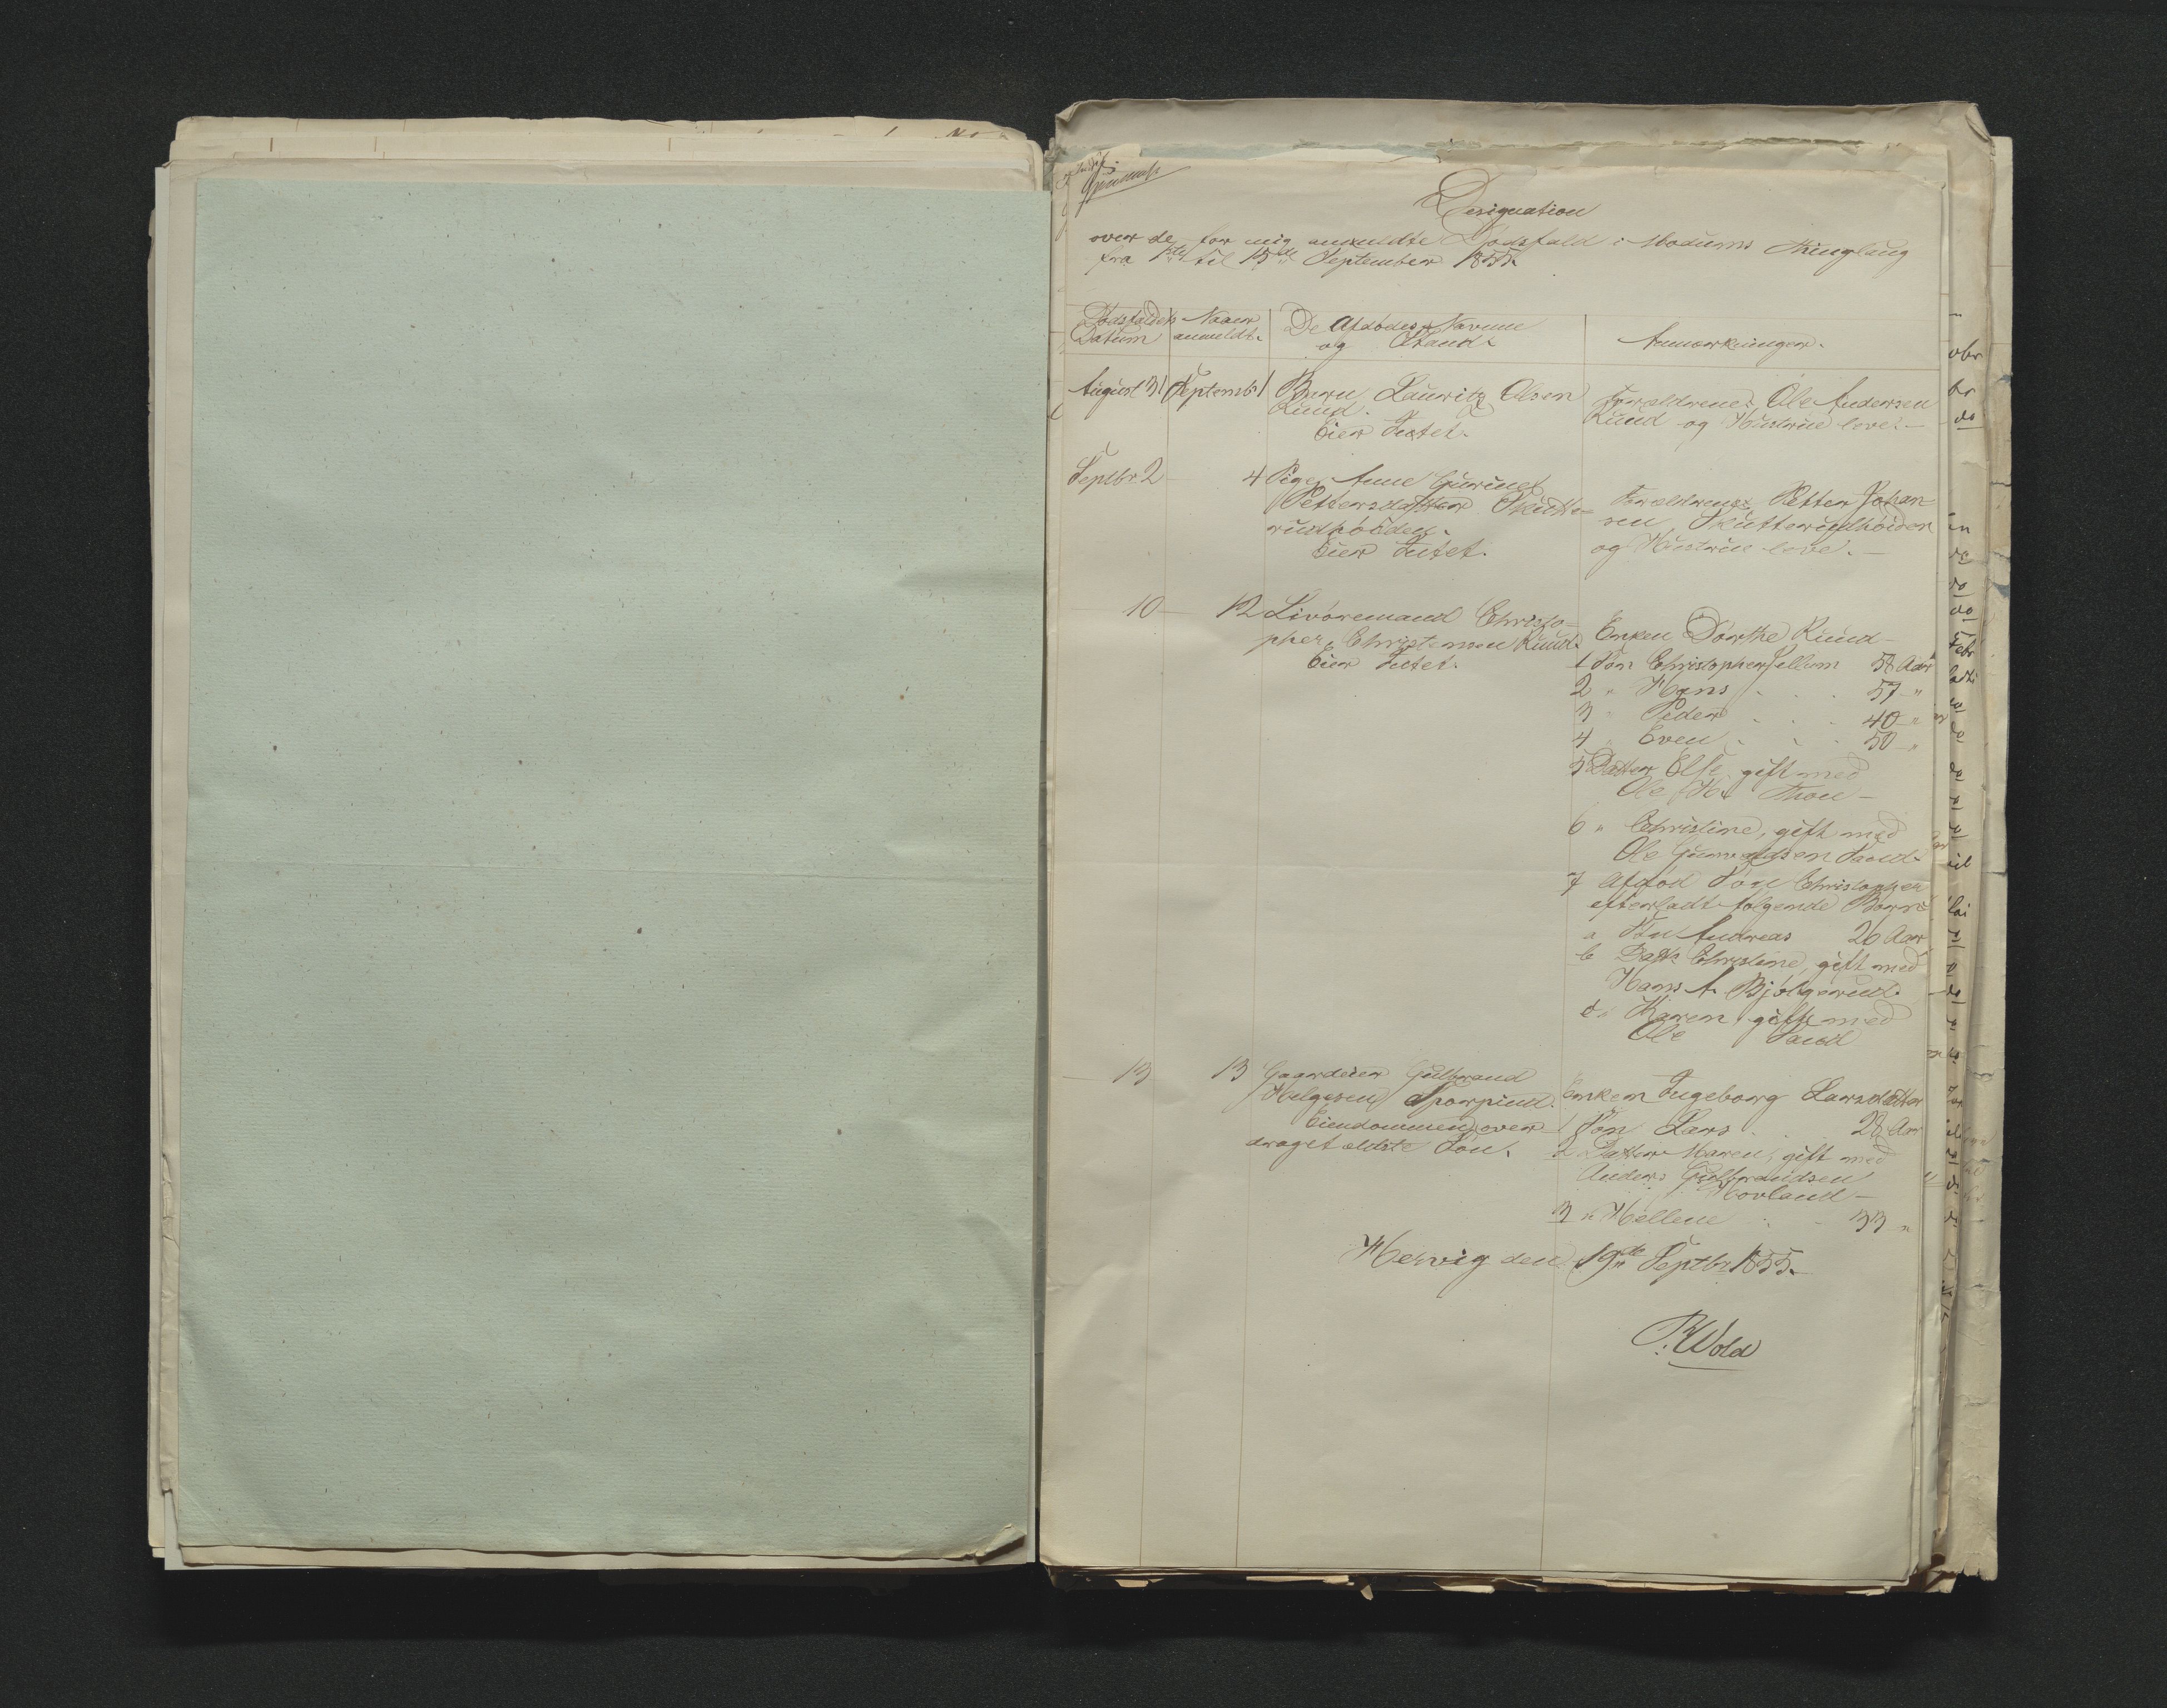 Designation
over de for mig anmeldte Dødsfald i Modums Thinglaug
fra 1ste til 15de September 1855.
Dødsfaldets Datum
Naar anmeldt.
De Afdødes Navne og Stand.
Anmærkninger.
August 31 Septembr 1 Barn Lauritz Olsen
Ruud.
Eier Intet.
Forældrene Ole Andersen
Ruud og Hustrue lever.
Septbr. 2 4 Pige Anne Gurine
Pettersdatter Skutte-
rudhøiden.
Eier Intet.
Forældrene Petter Johan-
sen, Skutterudhøiden
og Hustrue lever.
10 12 Livøremand Christo-
pher Christensen Ruud.
Eier Intet.
Enken Dorthe Ruud
1 Søn Christopher Jellum 58 Aar
2 " Hans 57 "
3 " Peder 40 "
4 " Even 50 "
5 Datter Else gift med
Ole Thon
6 " Christine, gift med
Ole Sand.
7 Afdød Søn Christopher
efterladt følgende Børn
a Søn Andreas 26 Aar
b Dattr Christine, gift med
Hans A. Bjølgerud.
c " Karen, gift med
Ole Sand
13 13 Gaardeier Gulbrand
Helgesen
Eiendommen over-
draget ældste Søn.
Enken Ingeborg Larsdatter
1 Søn Lars 28 Aar
2 Datter Maren, gift med
Anders Gulbrandsen
Hovland
3 " Hellene 33 "
Hervig den 19de Septbr 1855.
P. Wold